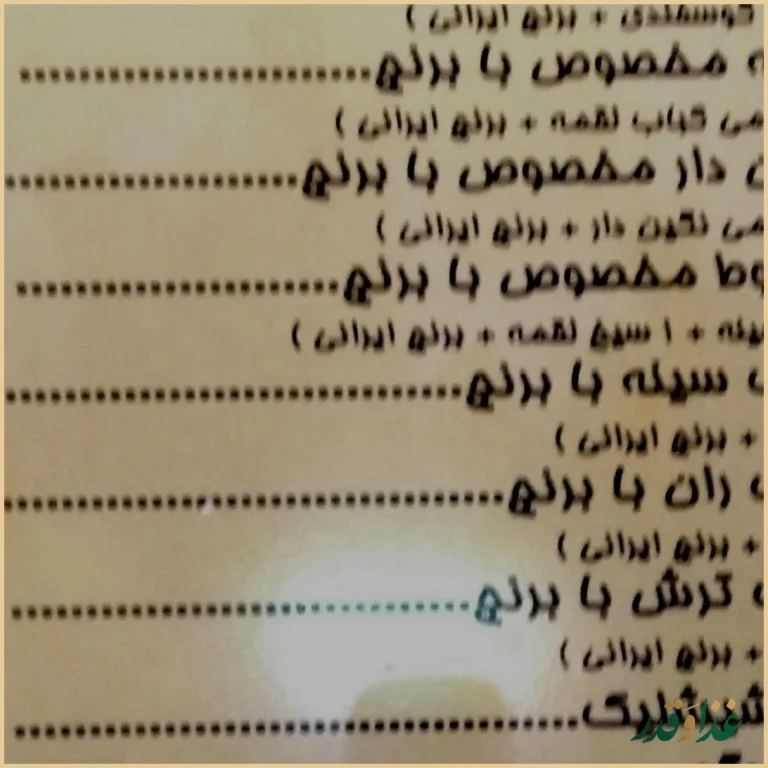 گوسفندی + برنج ایرانی )
مخصوص با برنج....................
کباب لقمه + برنج ایرانی )
دار مخصوص با برنج....................
نگین دار + برنج ایرانی )
مخصوص با برنج....................
+ ۱ سیخ لقمه + برنج ایرانی )
سینه با برنج....................
+ برنج ایرانی )
ران با برنج....................
+ برنج ایرانی )
ترش با برنج....................
+ برنج ایرانی )
شیشلیک....................
غذا و قدر